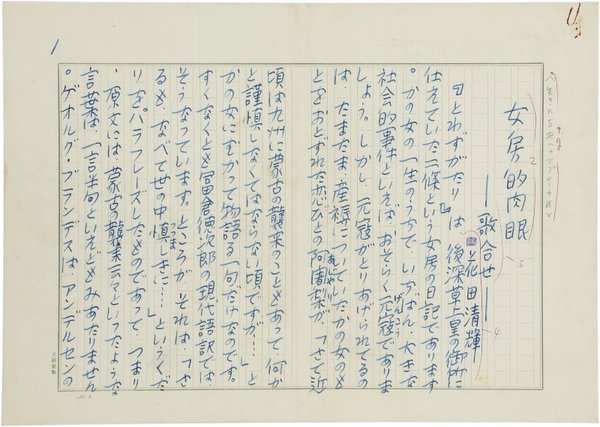 女房的肉眼
――歌合せ――
花田清輝
「とわずがたり」は、後深草上皇の御所に
仕えていた二條という女房の日記であります
。かの女の一生のうちで、いちばん大きな
社会的事件といえば、おそらく元寇でありま
しょう。しかし、元寇がとりあげられてるの
は、たまたま、産褥についていたかの女のも
とをおとずれた恋びとの阿闍梨が、「さて近
頃は九州に蒙古の襲来のこともあって何か
と謹慎しなくてはならない頃ですが……」と
かの女にむかって物語る一句だけなのです。
すくなくとも冨倉徳次郎の現代語訳では、
そうなっています。ところが、それは「さ
るも、なべて世の中慎しきに……」というくだ
りをパラフレーズしたものであって、つまり
、原文には、蒙古の襲来云々といったような
言葉は、一言半句といえどもみあたりません
。ゲオルグ・ブランデスは、アンデルセンの
1